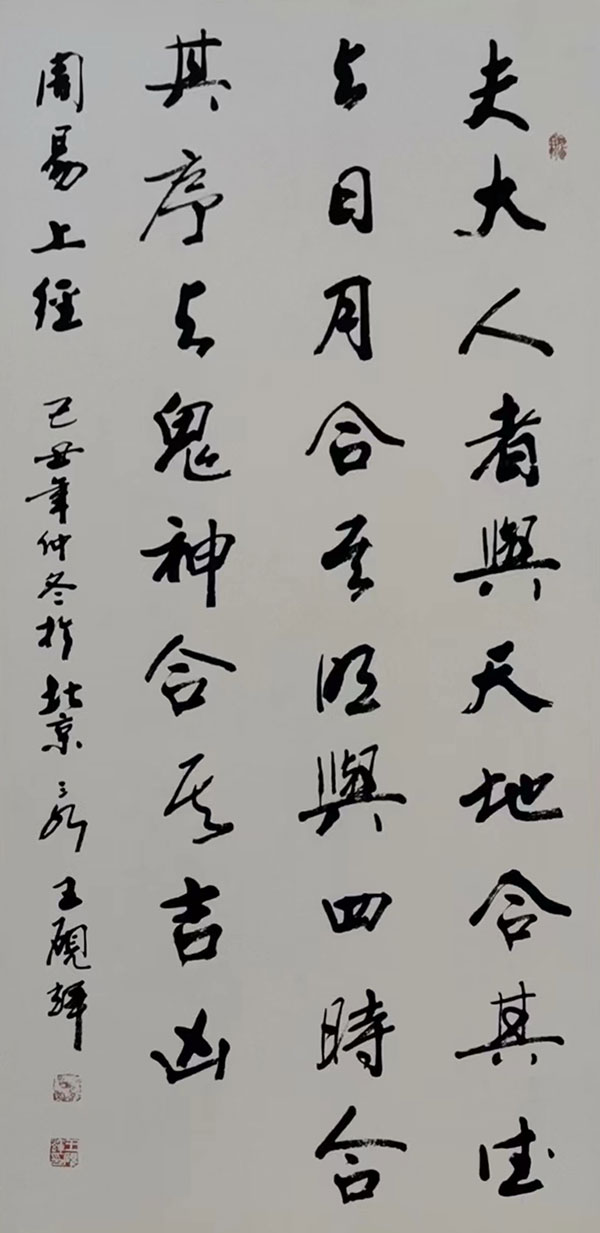 夫大人者與天地合其德
与日月合其明與四時合
其序与鬼神合其吉凶
周易上經 己丑年仲冬於北京 王硯輝